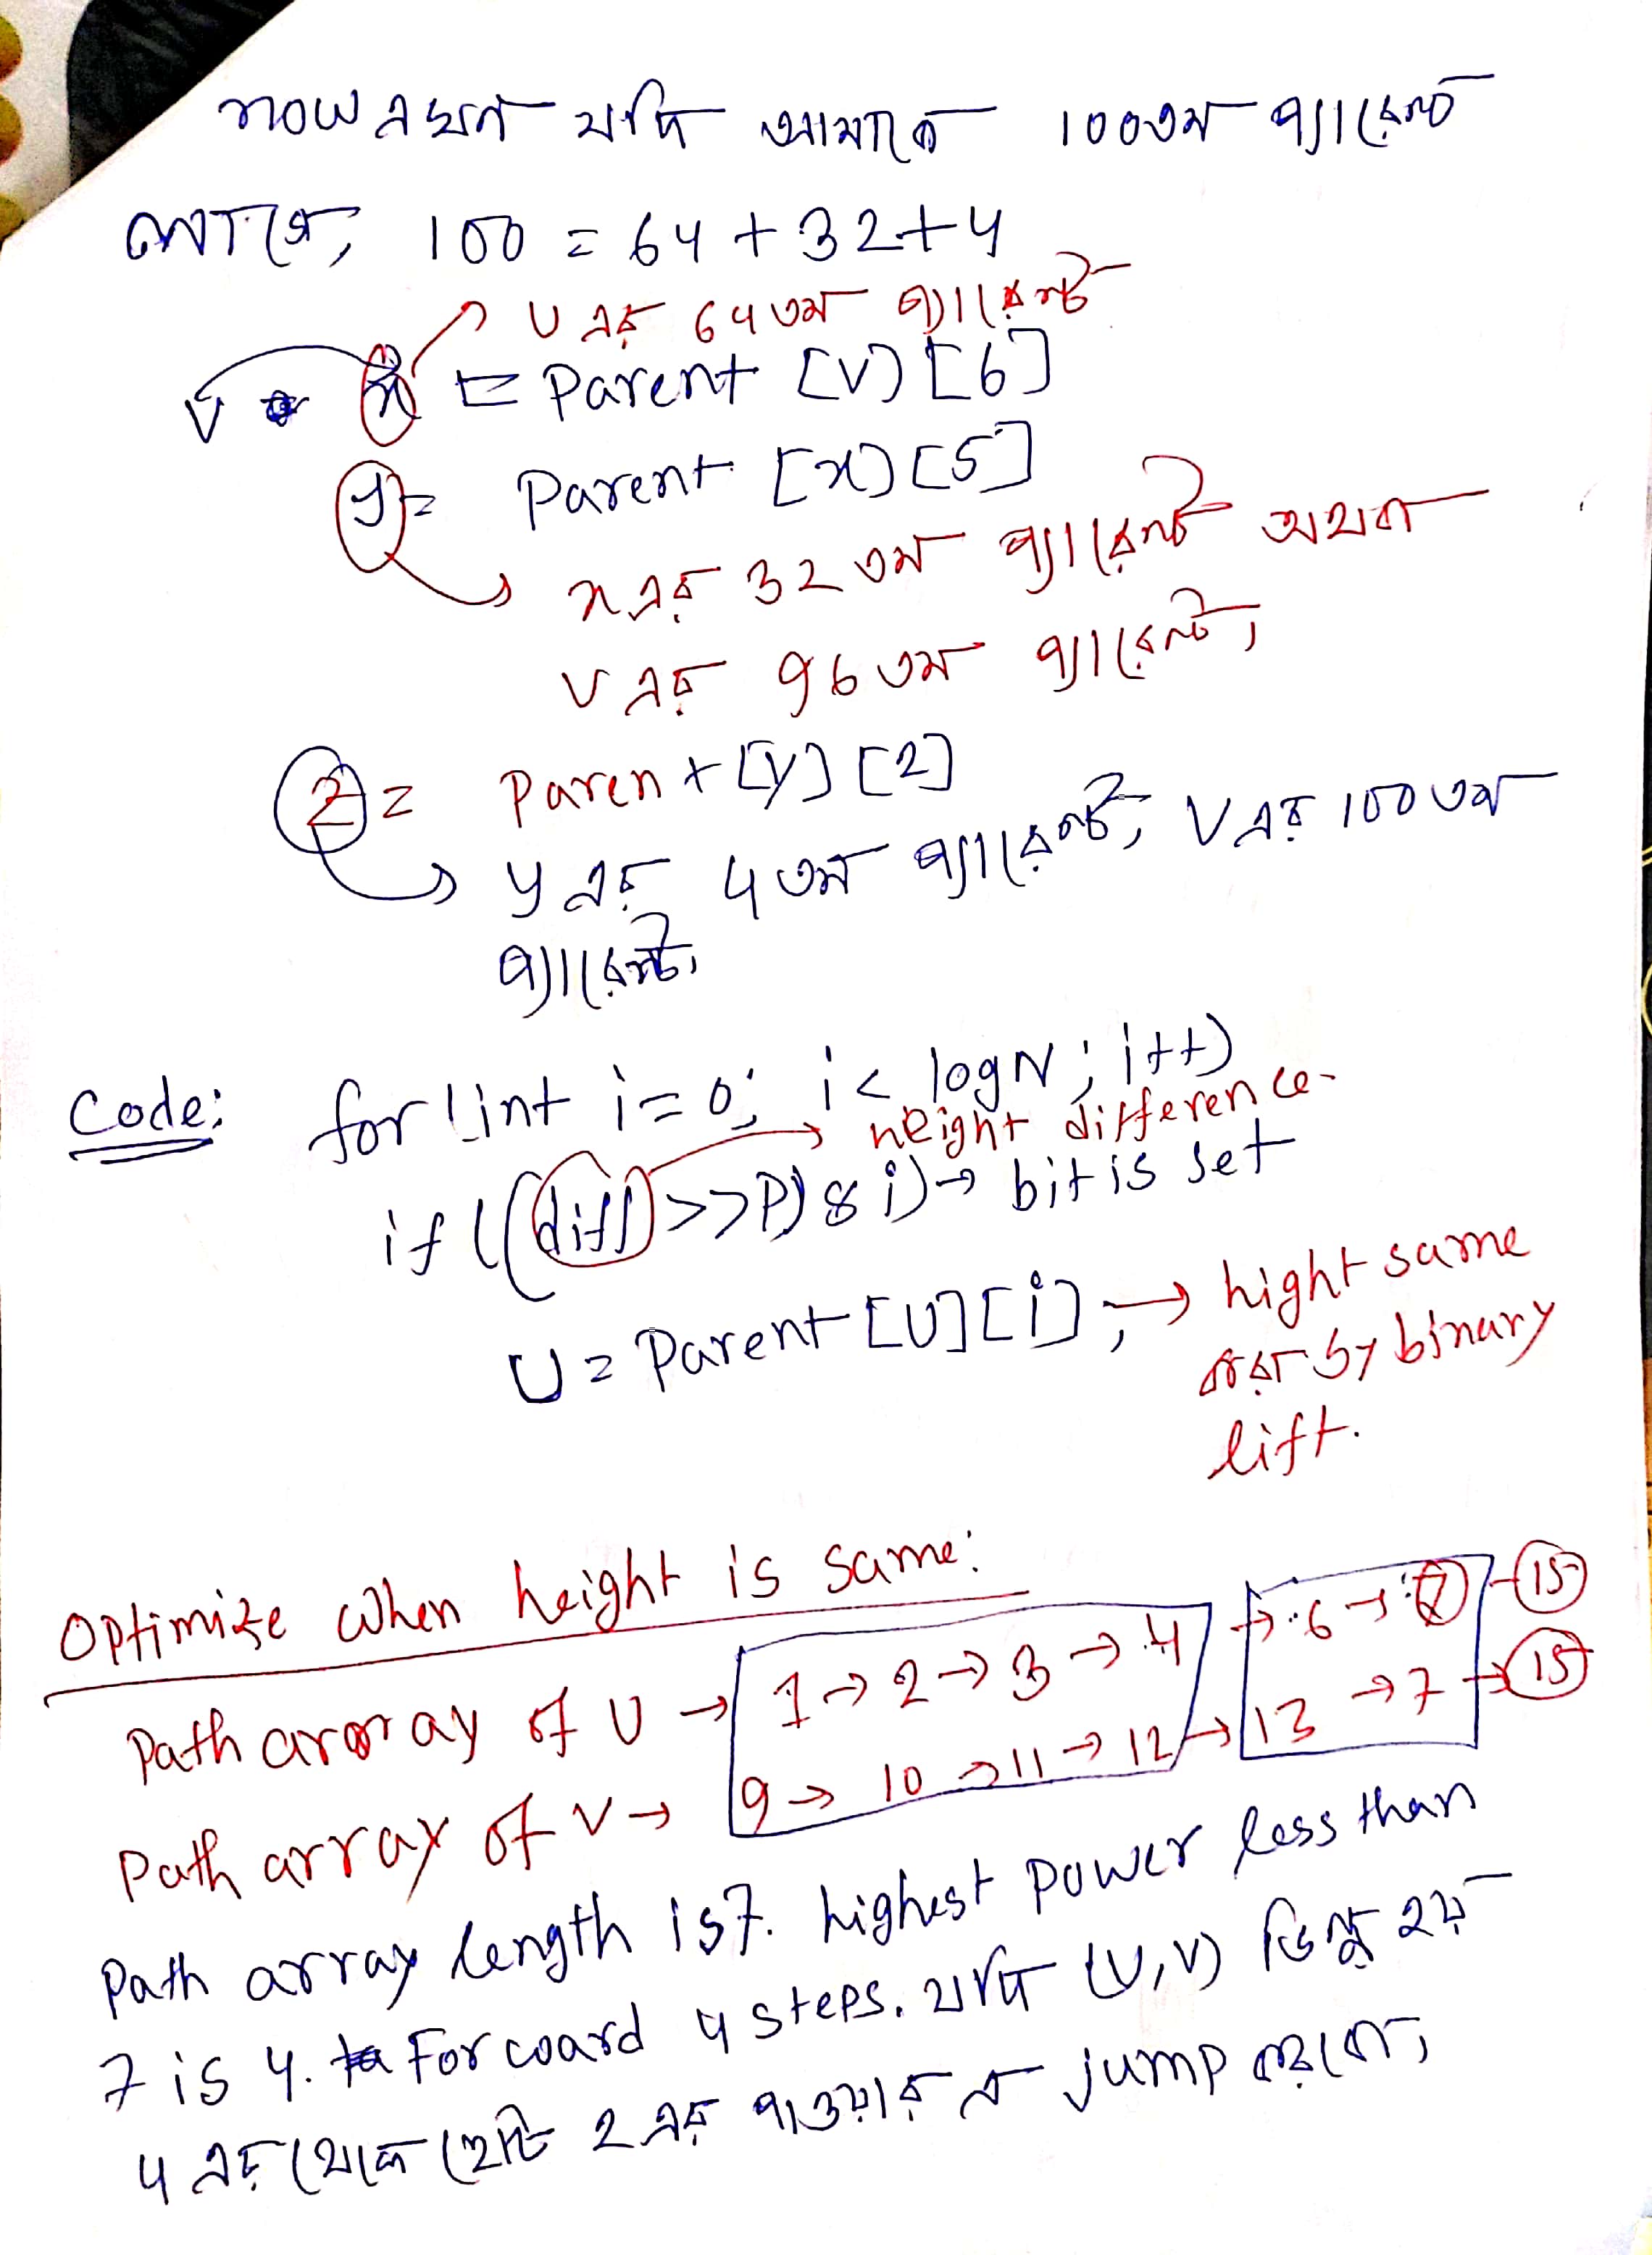 now এখন যদি আমাকে 100তম প্যারেন্ট
লাগে, 100 = 64 + 32 + 4
v এর 64তম প্যারেন্ট
v x = Parent [v] [6]
y = Parent [x] [5]
x এর 32 তম প্যারেন্ট অথবা
v এর 96 তম প্যারেন্ট,
z = Parent [y] [2]
y এর 4 তম প্যারেন্ট, v এর 100 তম
প্যারেন্ট,
Code: for (int i=0; i < logN; i++)
height difference
if ((diff >> P) & i) → bit is set
U = Parent [U] [i]; → hight same
করা by binary
lift.
Optimize when height is same:
Path array of U → 1 → 2 → 3 → 4 → 6 → 7 → 15
Path array of v → 9 → 10 → 11 → 12 → 13 → 7 → 15
Path array length is 7. highest power less than
7 is 4. Forward 4 steps. যদি (U,V) ভিন্ন হয়
4 এর থেকে ছোট 2 এর পাওয়ার এ jump করবো,